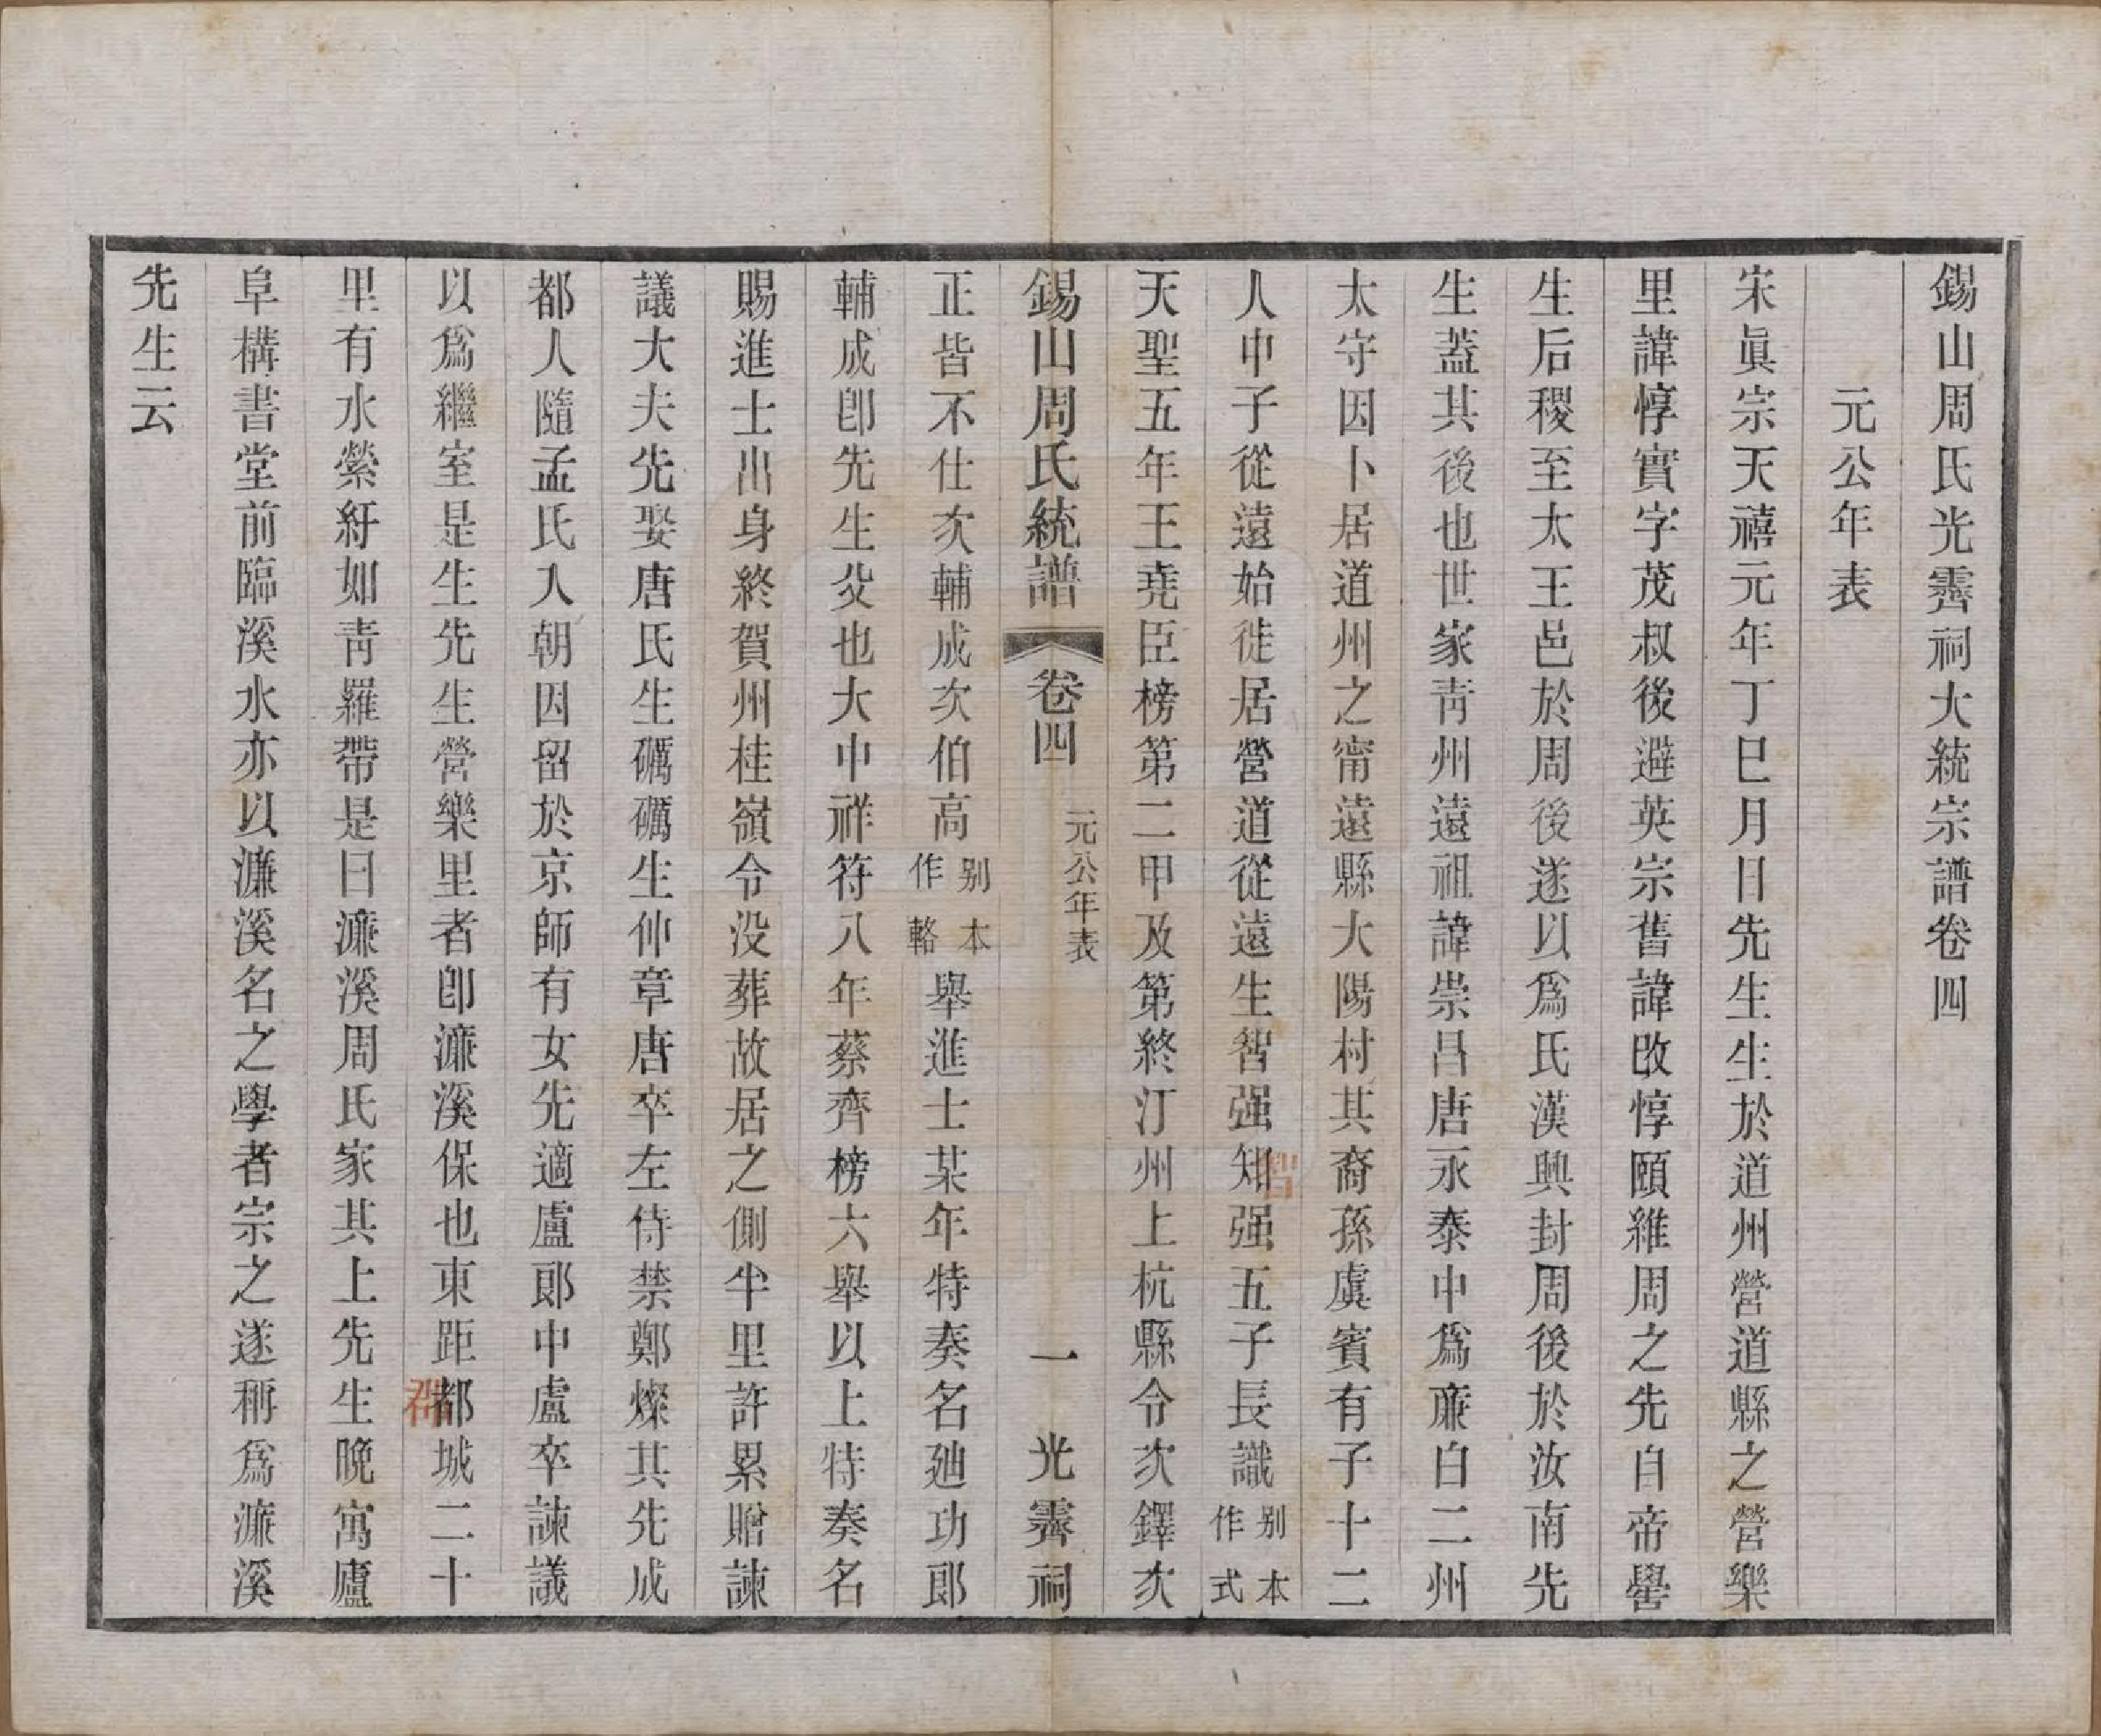 錫山周氏光霽祠大統宗譜卷四
元公年表
宋眞宗天禧元年丁巳月日先生生於道州營道縣之營樂
里諱惇實字茂叔後避英宗舊諱改惇頤維周之先自帝嚳
生后稷至太王邑於周後遂以爲氏漢興封周後於汝南先
生蓋其後也世家靑州遠祖諱崇昌唐永泰中爲廉白二州
太守因卜居道州之甯遠縣大陽村其裔孫虞賓有子十二
人中子從遠始徙居營道從遠生智强知强五子長識別本作式
智
天聖五年王堯臣榜第二甲及第終汀州上杭縣令次鐸次
錫山周氏統譜 卷四 元公年表 一 光霽祠
正皆不仕次輔成次伯高別本作輅舉進士某年特奏名廸功郎
輔成卽先生父也大中祥符八年蔡齊榜六舉以上特奏名
賜進士出身終賀州桂嶺令没葬故居之側半里許累贈諫
議大夫先娶唐氏生礪礪生仲章唐卒左侍禁鄭燦其先成
都人隨孟氏入朝因留於京師有女先適盧郎中盧卒諫議
以爲繼室是生先生營樂里者卽濂溪保也東距都城二十
里有水縈紆如靑羅帶是曰濂溪周氏家其上先生晚寓廬
阜構書堂前臨溪水亦以濂溪名之學者宗之遂稱爲濂溪
先生云